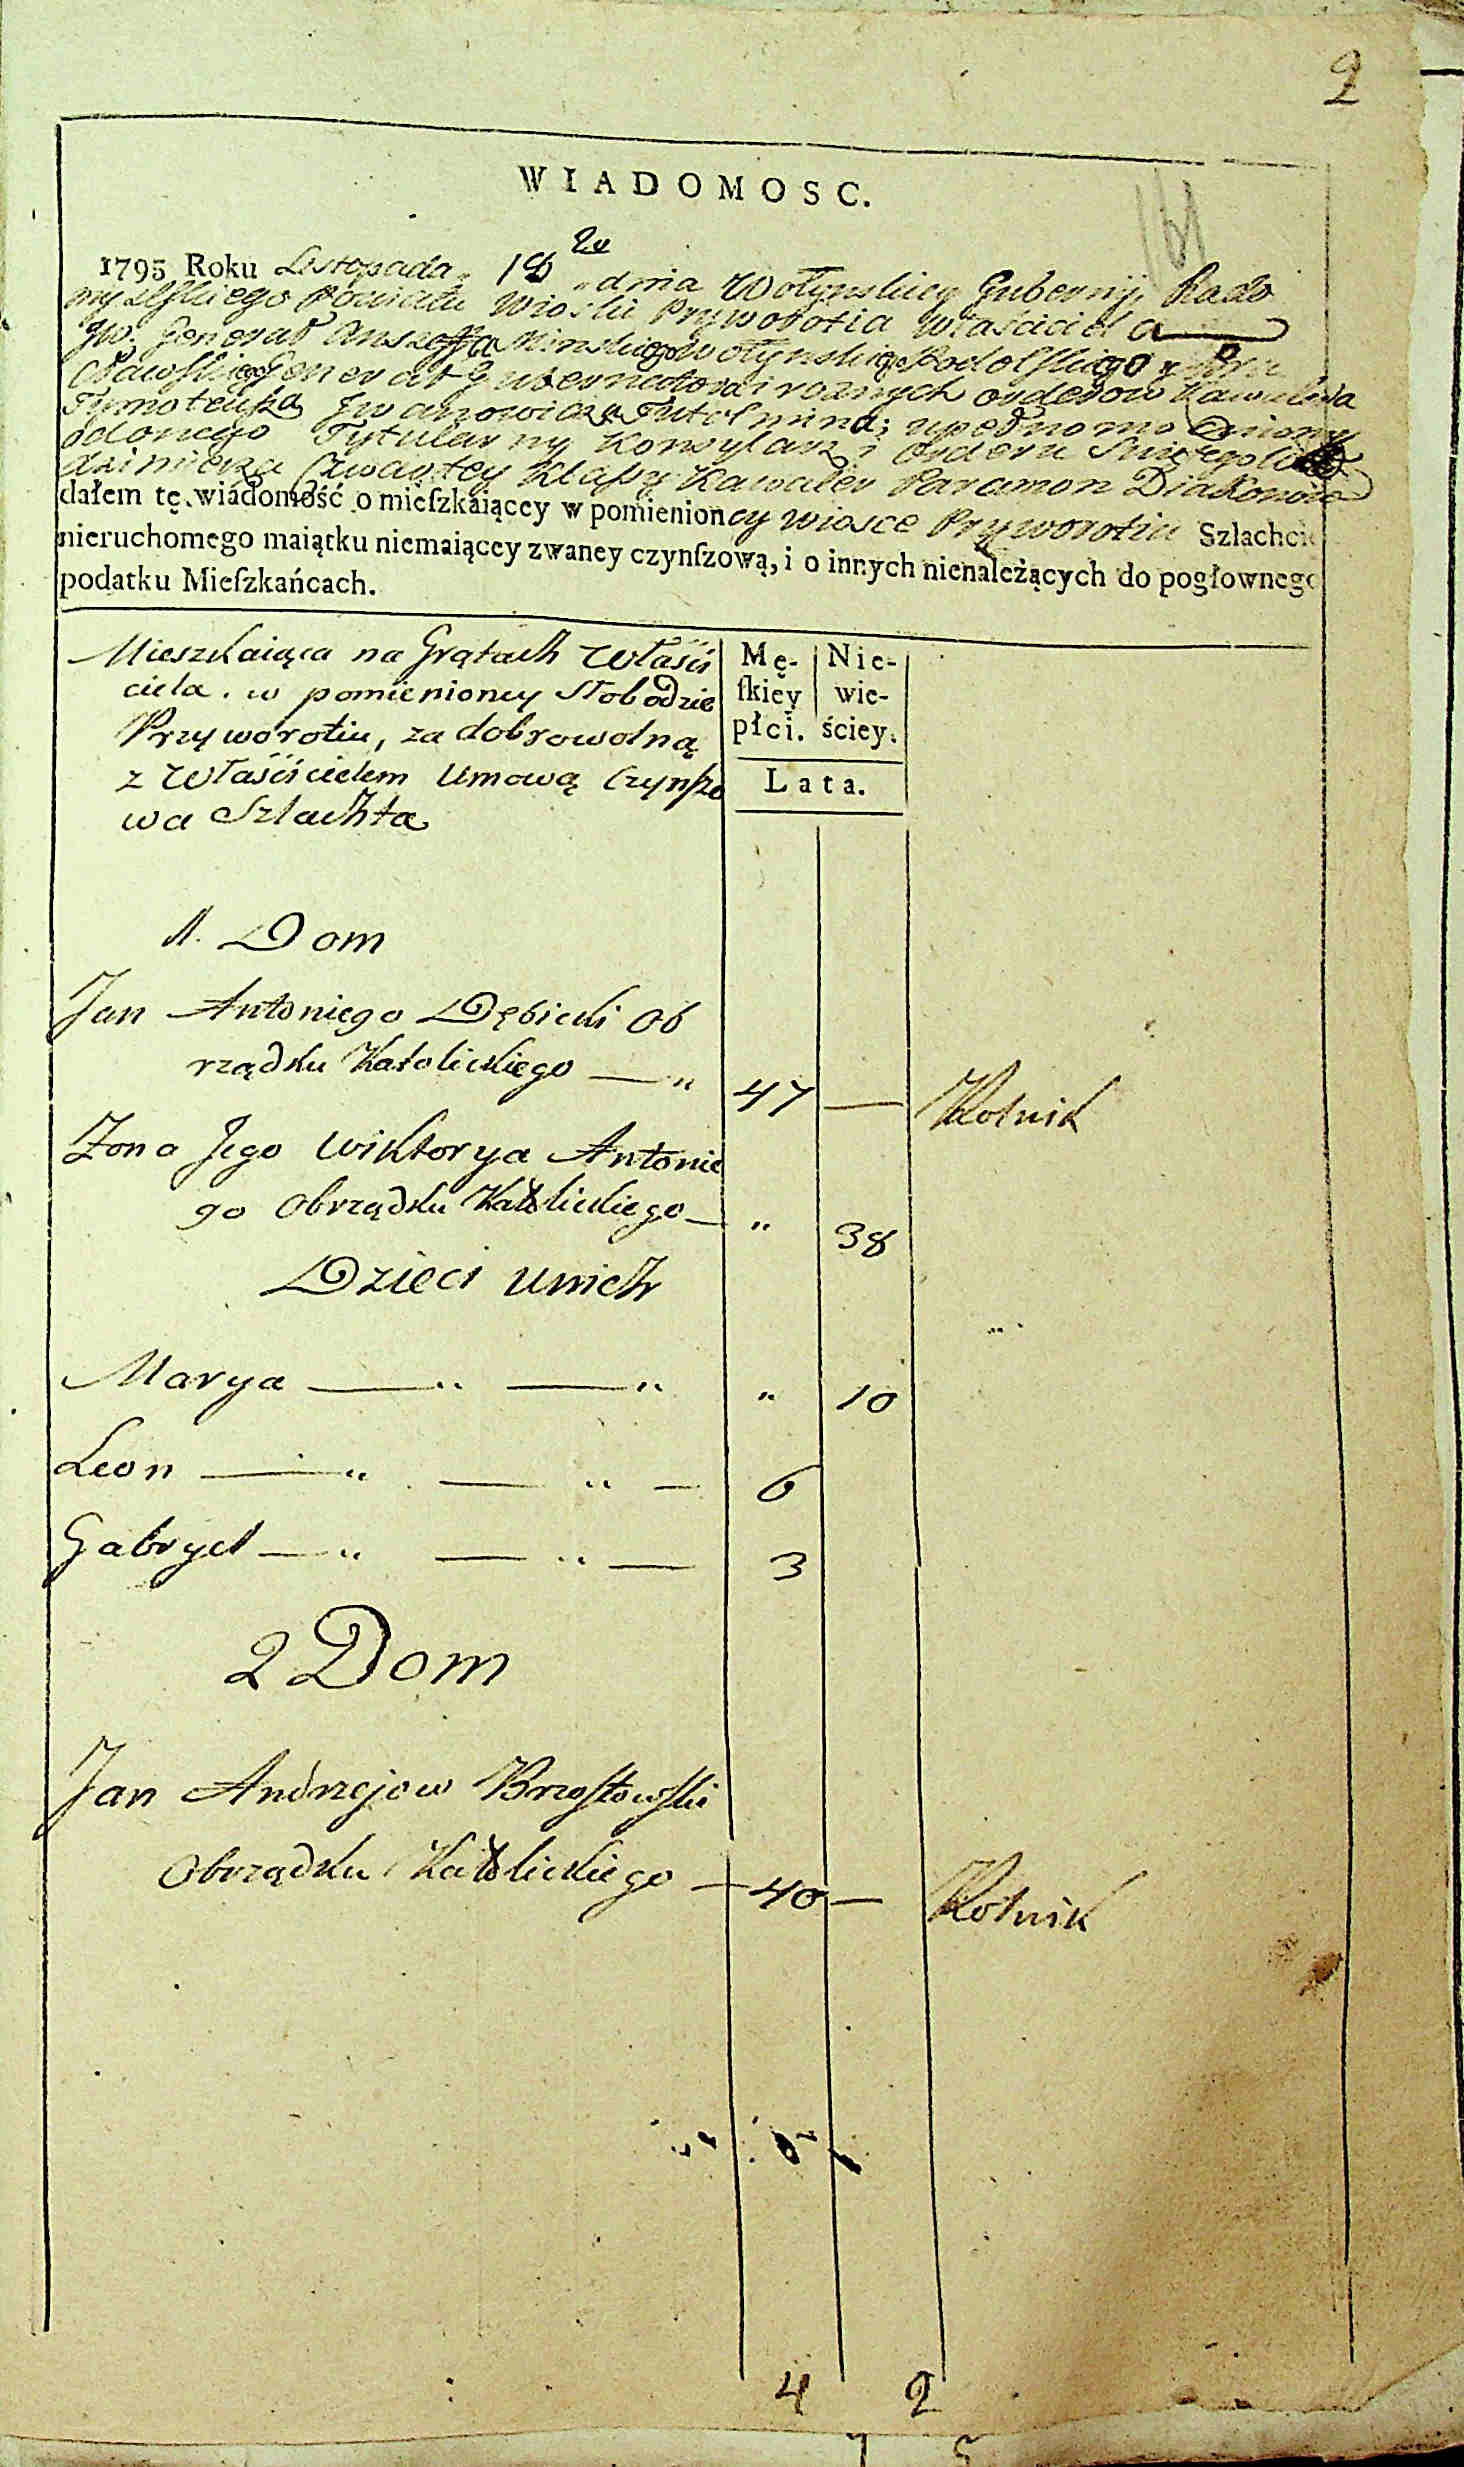 2
161
WIADOMOSC.
1795 Roku Listopada 18 go dnia Wołynskiey Gubernij, Rado
myslskiego Powiatu Wioski Pryworotia właściciela
Jw. Generał Anszeffa Minskiego Wołynskiego Podolskiego y Bra
cławskiego Generał Gubernatora i roznych orderow Kawalera
Tymoteusza Iwanowicza Tutolmina; upełnomocniony
odonego Tytularny Konsylarz i orderu Swiętego
dzimierza Czwartey Klassy Kawaler Paramon Diakonow
dałem tę wiadomość o mieſzkaiącey w pomienioncy wiosce Pryworotiu Szlachcie
nieruchomego maiątku niemaiącey zwaney czynſzową, i o innych nienależących do pogłownego
podatku Mieſzkańcach.
Mieszkaiąca na Grątach Właści
ciela. w pomienioney Słobodzie
Przyworotiu, za dobrowolną
z Właścicielem Umową Czynszo
wa Szlachta
Mę- Nie-
ſkiey wie-
płci. ściey.
Lata.
1. Dom
Jan Antoniego Dębicki Ob
rządku Katolickiego — „ 47 — Rolnik
Zona Jego Wiktorya Antonie
go Obrządku Katolickiego — „ 38
Dzieci unich
Marya — „ — „ „ 10
Leon — „ — „ — 6
Gabryel — „ — „ — 3
2 Dom
Jan Andrzejow Brzostowski
Obrządku Katolickiego — 40 — Rolnik
4 2